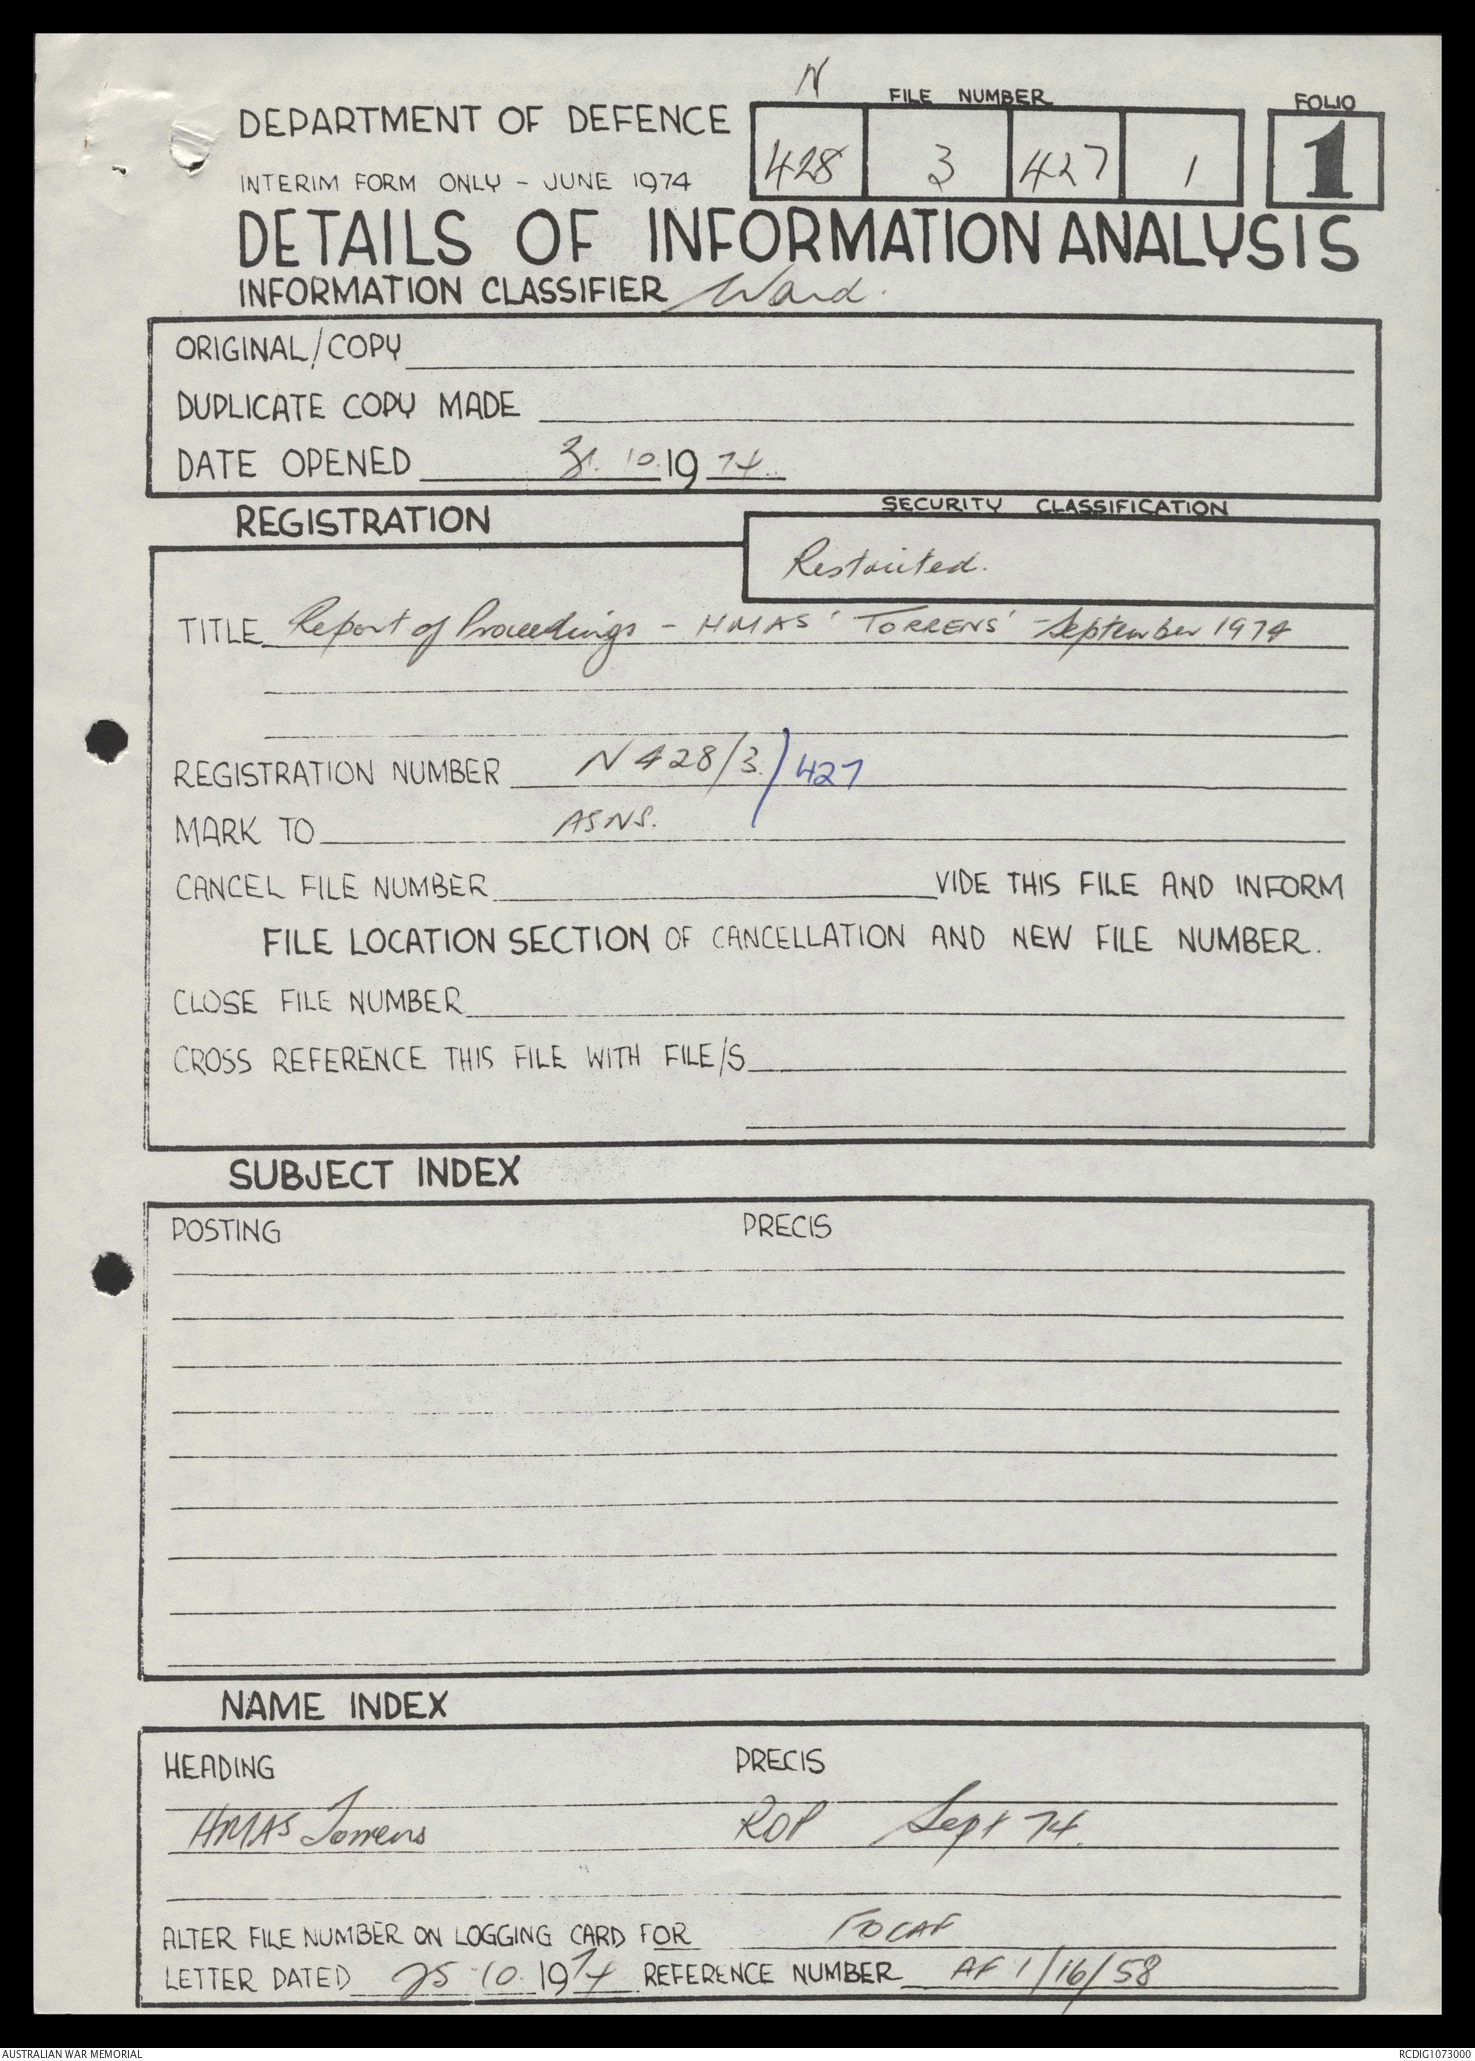 N
FILE NUMBER
FOLIO
DEPARTMENT OF DEFENCE
428 3 427 1
1
INTERIM FORM ONLY - JUNE 1974
DETAILS OF INFORMATION ANALYSIS
INFORMATION CLASSIFIER Ward.
ORIGINAL/COPY
DUPLICATE COPY MADE
DATE OPENED 31. 10. 19 74.
REGISTRATION
SECURITY CLASSIFICATION
Restricted.
TITLE Report of Proceedings - HMAS 'TORRENS' - September 1974
REGISTRATION NUMBER N 428/3/427
MARK TO ASNS.
CANCEL FILE NUMBER VIDE THIS FILE AND INFORM
FILE LOCATION SECTION OF CANCELLATION AND NEW FILE NUMBER.
CLOSE FILE NUMBER
CROSS REFERENCE THIS FILE WITH FILE/S
SUBJECT INDEX
POSTING PRECIS
NAME INDEX
HEADING PRECIS
HMAS Torrens ROP Sept 74.
ALTER FILE NUMBER ON LOGGING CARD FOR FOCAF
LETTER DATED 25 10. 1974 REFERENCE NUMBER AF 1/16/58
AUSTRALIAN WAR MEMORIAL RCDIG1073000